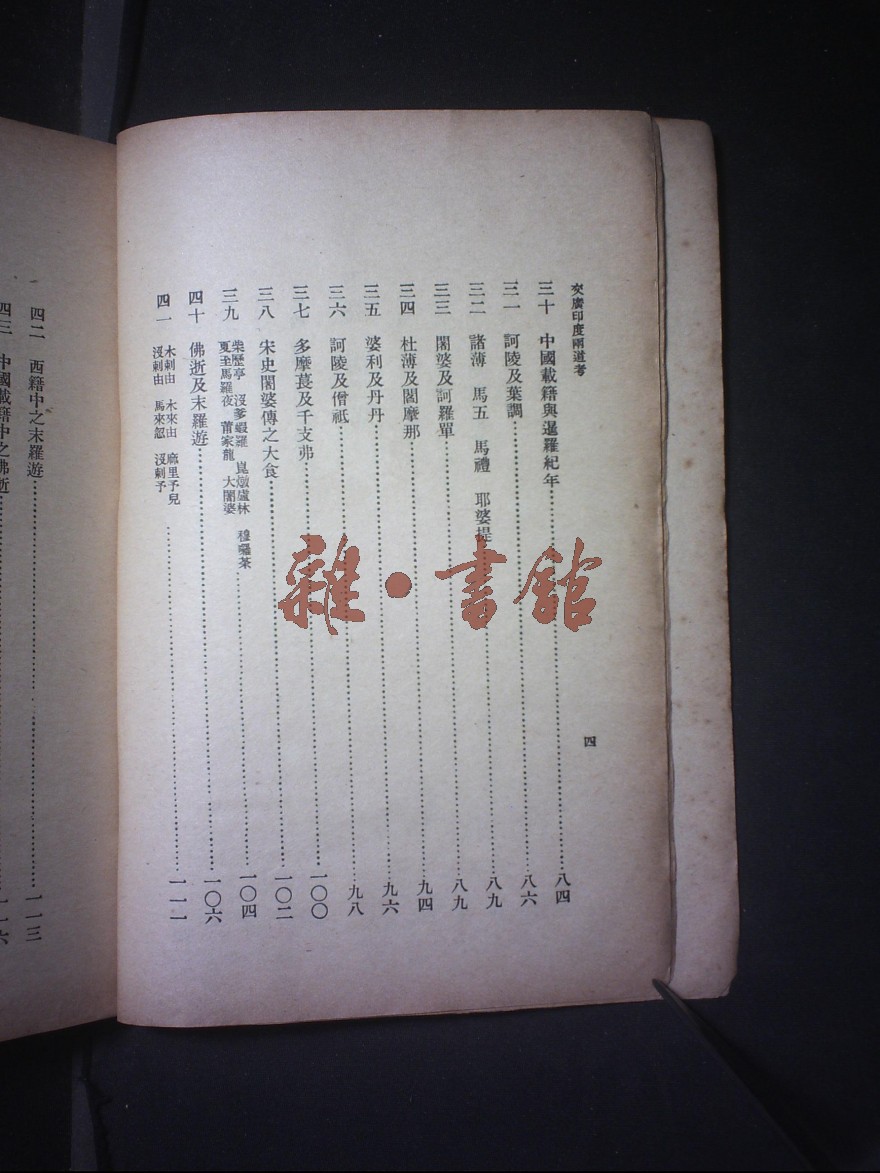 交廣印度兩道考
四
三十 中國載籍與暹羅紀年 八四
三一 訶陵及葉調 八六
三二 諸薄 馬五 馬禮 耶婆提 八九
三三 闍婆及訶羅單 八九
三四 杜薄及閣摩那 九四
三五 婆利及丹丹 九六
三六 訶陵及僧祇 九八
三七 多摩萇及千支弗 一〇〇
三八 宋史闍婆傳之大食 一〇二
三九 柴歷亭 沒爹蝦羅 崑燉盧林 穆囉茶
夏至馬羅夜 莆家龍 大闍婆 一〇四
四十 佛逝及末羅遊 一〇六
四一 木剌由 木來由 麻里予兒
沒剌由 馬來忽 沒剌予 一一一
四二 西籍中之末羅遊 一一三
四三 中國載籍中之佛逝 一一六
雜·書館